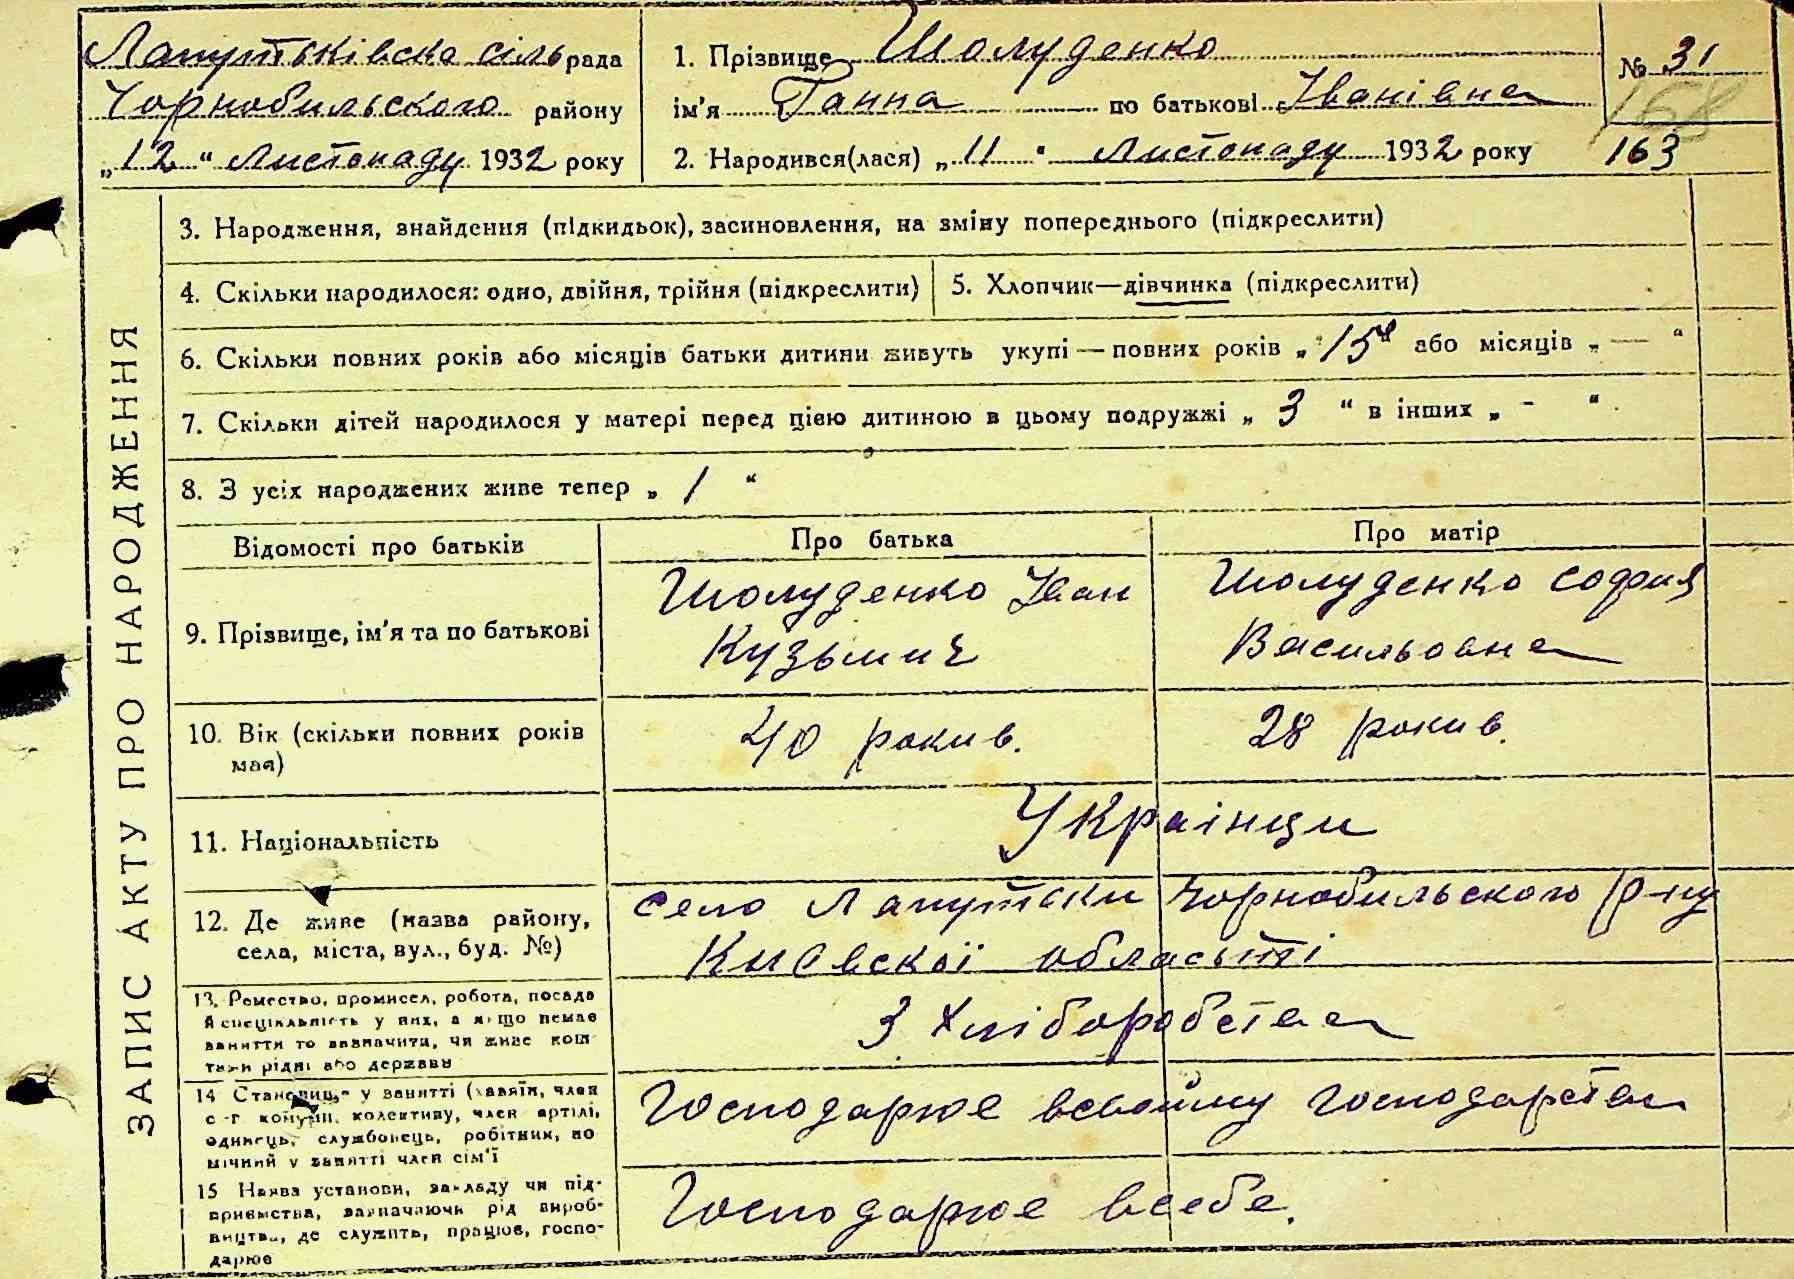 Лапутьківска сільрада
Чорнобильского району
„12“ Листопаду 1932 року
1. Прізвище Шолуденко
ім'я Ганна по батькові Іванівна
2. Народився(лася) „11“ Листопаду 1932 року
№ 31
168
163
ЗАПИС АКТУ ПРО НАРОДЖЕННЯ
3. Народження, знайдення (підкидьок), засиновлення, на зміну попереднього (підкреслити)
4. Скільки народилося: одно, двійня, трійня (підкреслити)
5. Хлопчик—дівчинка (підкреслити)
6. Скільки повних років або місяців батьки дитини живуть укупі — повних років „15“ або місяців „—“
7. Скільки дітей народилося у матері перед цією дитиною в цьому подружжі „3“ в інших „-“.
8. З усіх народжених живе тепер „1“
Відомості про батьків
Про батька
Про матір
9. Прізвище, ім'я та по батькові
Шолуденко Іван
Кузьмич
Шолуденко София
Васильовна
10. Вік (скільки повних років
має)
40 рокив.
28 рокив.
11. Національність
Українци
12. Де живе (назва району,
села, міста, вул., буд. №)
село Лапутьки Чорнобильского р-ну
Киевскої области
13. Ремество, промисел, робота, посада
й спеціяльність у них, а якщо немає
заняття то зазначити, чи живе кош-
тами рідні або держави
З Хліборобства
14 Становище у занятті (хазяїн, член
с-г комуни, колективу, член артілі,
одинець, службовець, робітник, по
мічний у занятті член сім'ї
Господарює всвойму господарстві
15 Назва установи, закладу чи під-
приємства, зазначаючи рід вироб-
ництва, де служить, працює, госпо-
дарює
Господарює всебе.